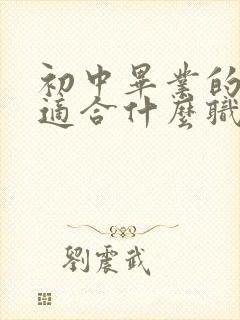 初中畢業的
適合什麼職
劉震武